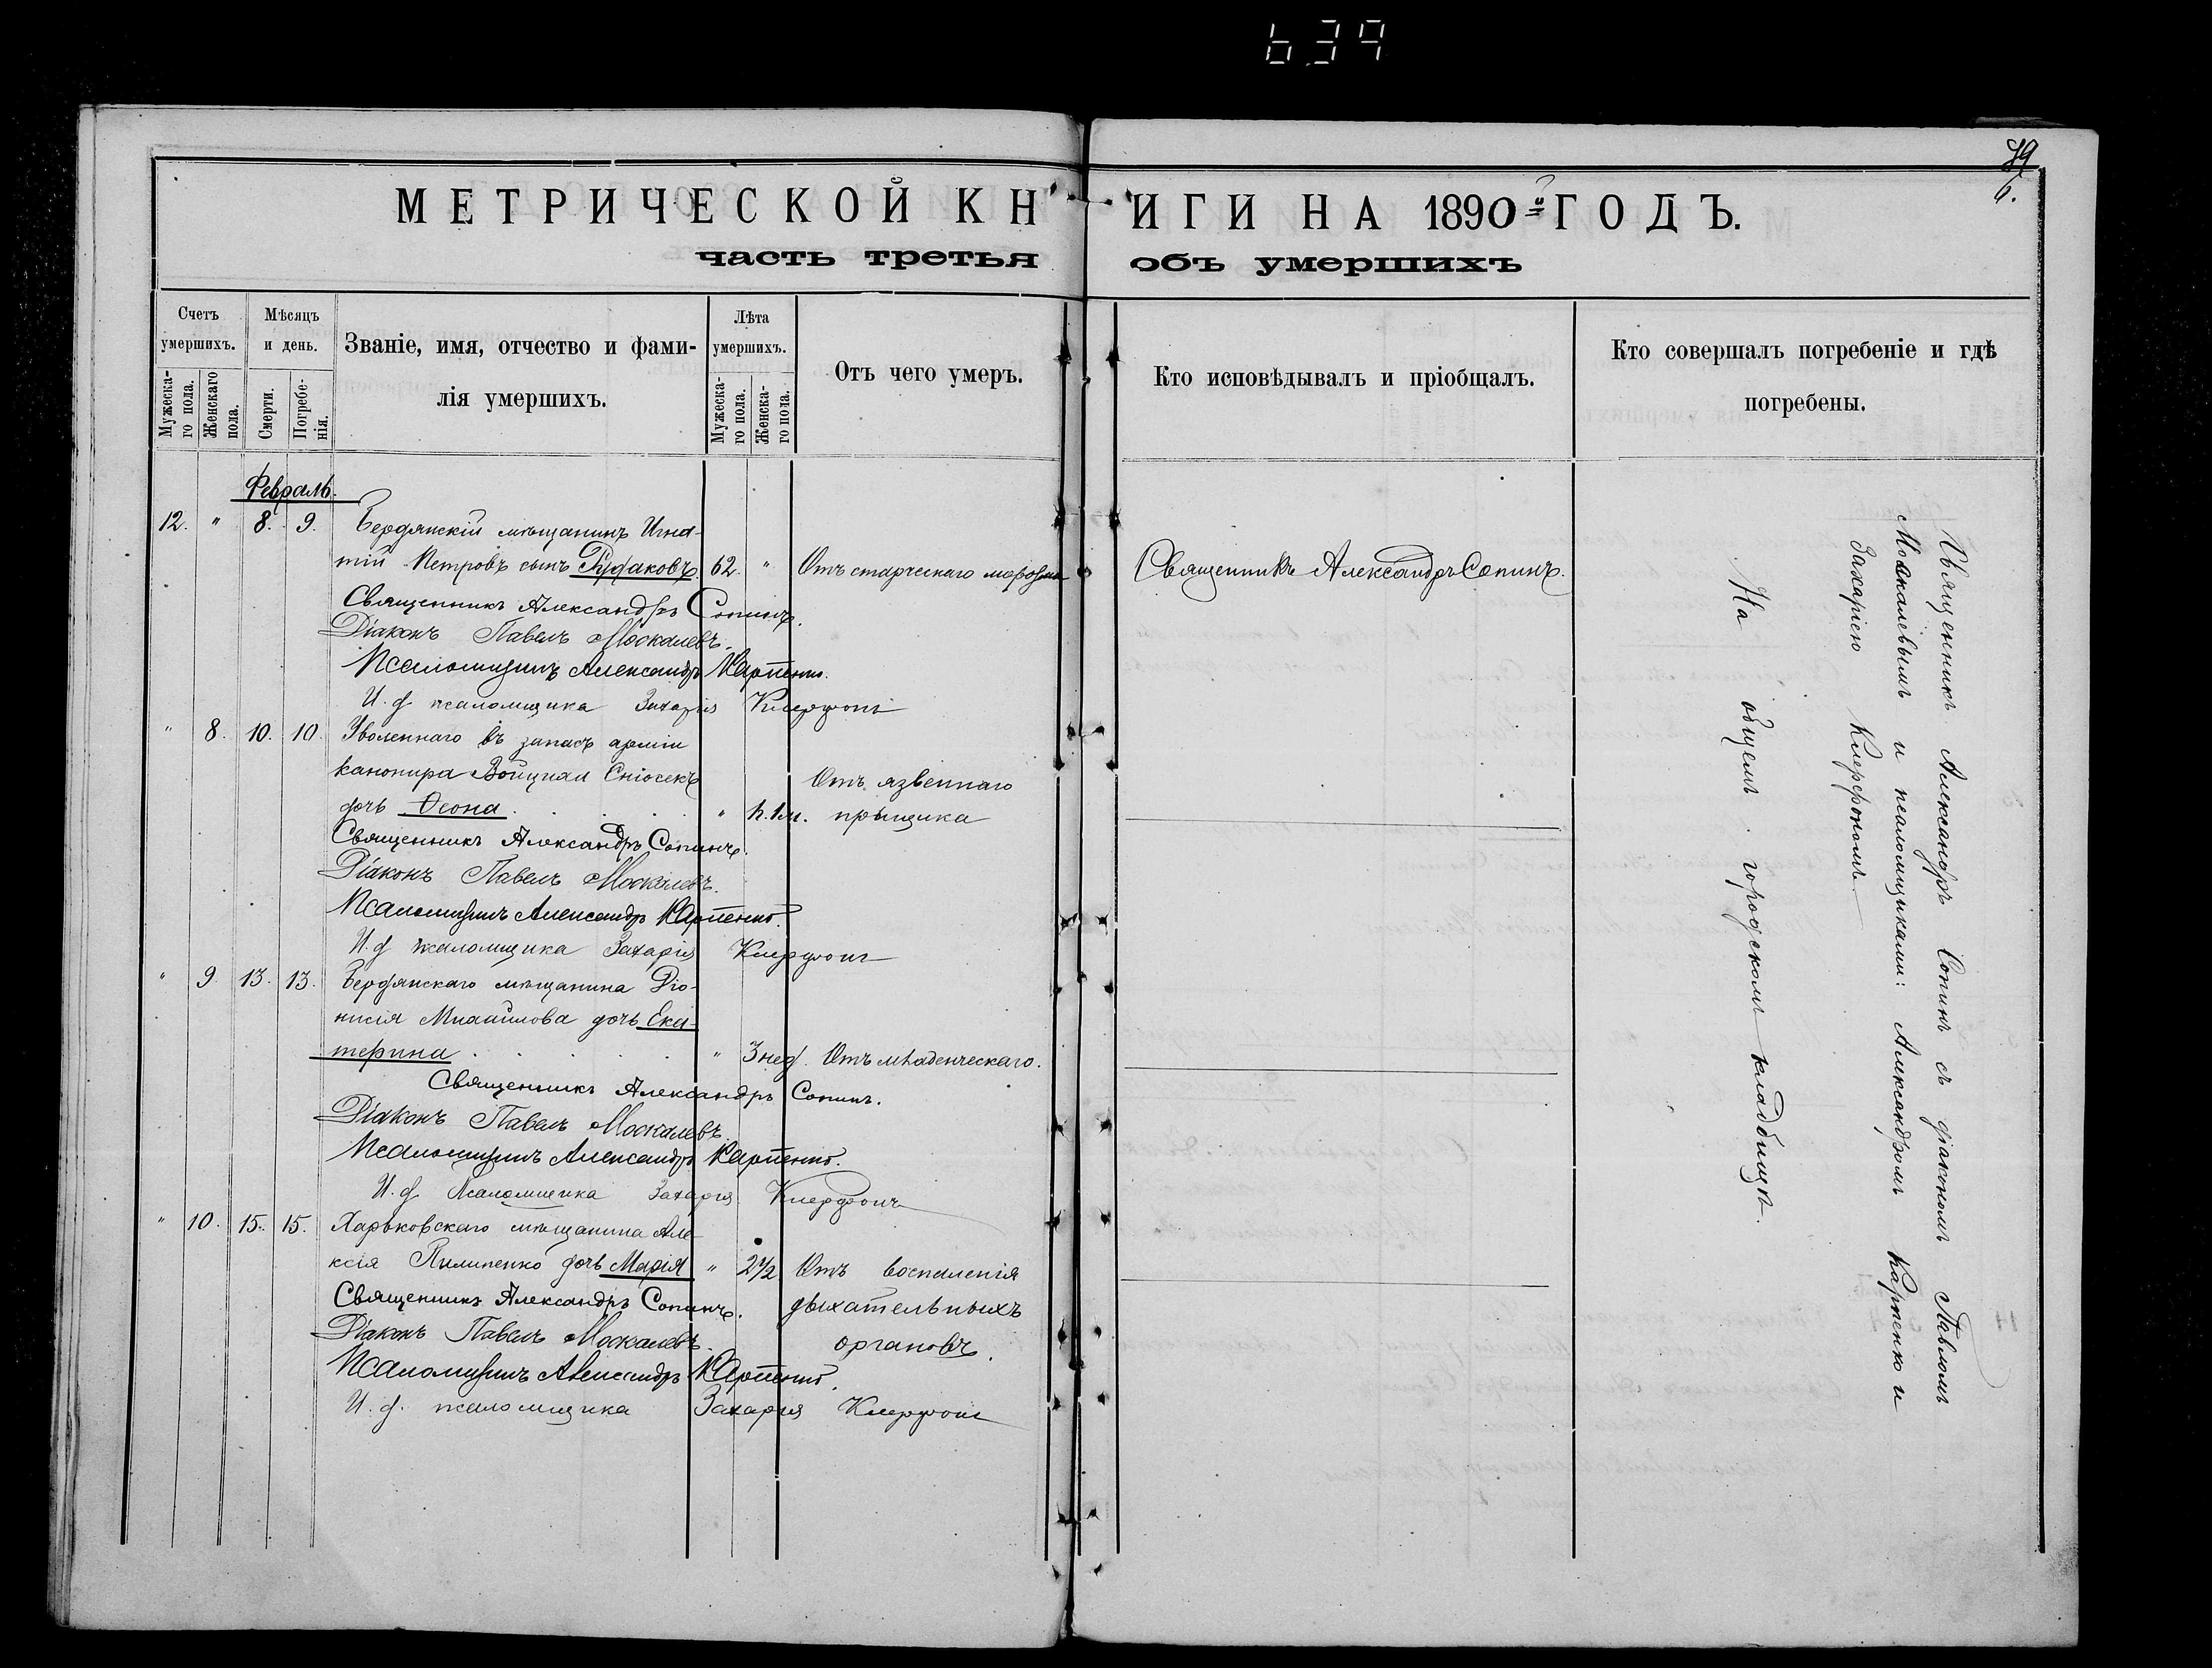 639
79
6.
МЕТРИЧЕСКОЙ КНИГИ НА 1890й ГОДЪ.
часть третья объ умершихъ
Счетъ умершихъ.
Мужеска-го пола.
Женскаго пола.
Мѣсяцъ и день.
Смерти.
Погребе-нія.
Званіе, имя, отчество и фами-
лія умершихъ.
Лѣта умершихъ.
Мужеска-го пола.
Женска-го пола.
Отъ чего умеръ.
Кто исповѣдывалъ и пріобщалъ.
Кто совершалъ погребеніе и гдѣ
погребены.
Февраль.
12. " 8. 9. Бердянскій мѣщанинъ Игна-
тій Петровъ сынъ Рудаковъ. 62. " Отъ старческаго маразма Священникъ Александръ Сопинъ.
Священникъ Александръ Сопинъ.
Діаконъ Павелъ Москалевъ.
Псаломщикъ Александръ Карпенко.
И. д. псаломщика Захарія Клерфонъ
" 8. 10. 10. Уволеннаго въ запасъ арміи
канонира
дочь Ѳеона " п. 1 м. Отъ язвеннаго
прыщика
Священникъ Александръ Сопинъ.
Діаконъ Павелъ Москалевъ.
Псаломщикъ Александръ Карпенко.
И. д. псаломщика Захарія Клерфонъ
" 9. 13. 13. Бердянскаго мѣщанина Діо-
нисія Михайлова дочь Ека-
терина " 3 нед. Отъ младенческаго.
Священникъ Александръ Сопинъ.
Діаконъ Павелъ Москалевъ.
Псаломщикъ Александръ Карпенко.
И. д. Псаломщика Захарія Клерфонъ
" 10. 15. 15. Харьковскаго мѣщанина Але-
ксія Пилипенко дочь Марія " 2½ Отъ воспаленія
Священникъ Александръ Сопинъ. дыхательныхъ
Діаконъ Павелъ Москалевъ. органовъ.
Псаломщикъ Александръ Карпенко.
И. д. псаломщика Захарія Клерфонъ
Священникъ Александръ Сопинъ съ діакономъ Павломъ
Москалёвымъ и псаломщиками: Александромъ Карпенко и
Захаріею Клерфономъ
На общемъ городскомъ кладбищѣ.